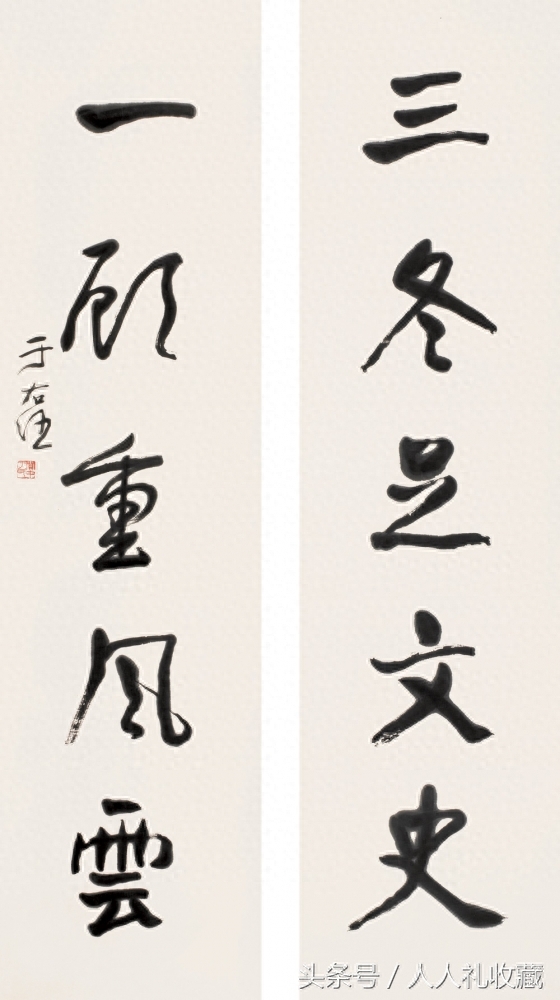 三冬足文史
一顾重风雲
于右任
头条号 / 人人礼收藏